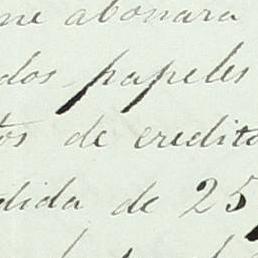 me abonara
dos papeles
tos de credito
dida de 25